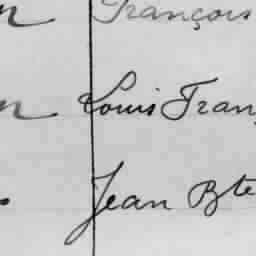 François
Louis Fran
Jean Bte